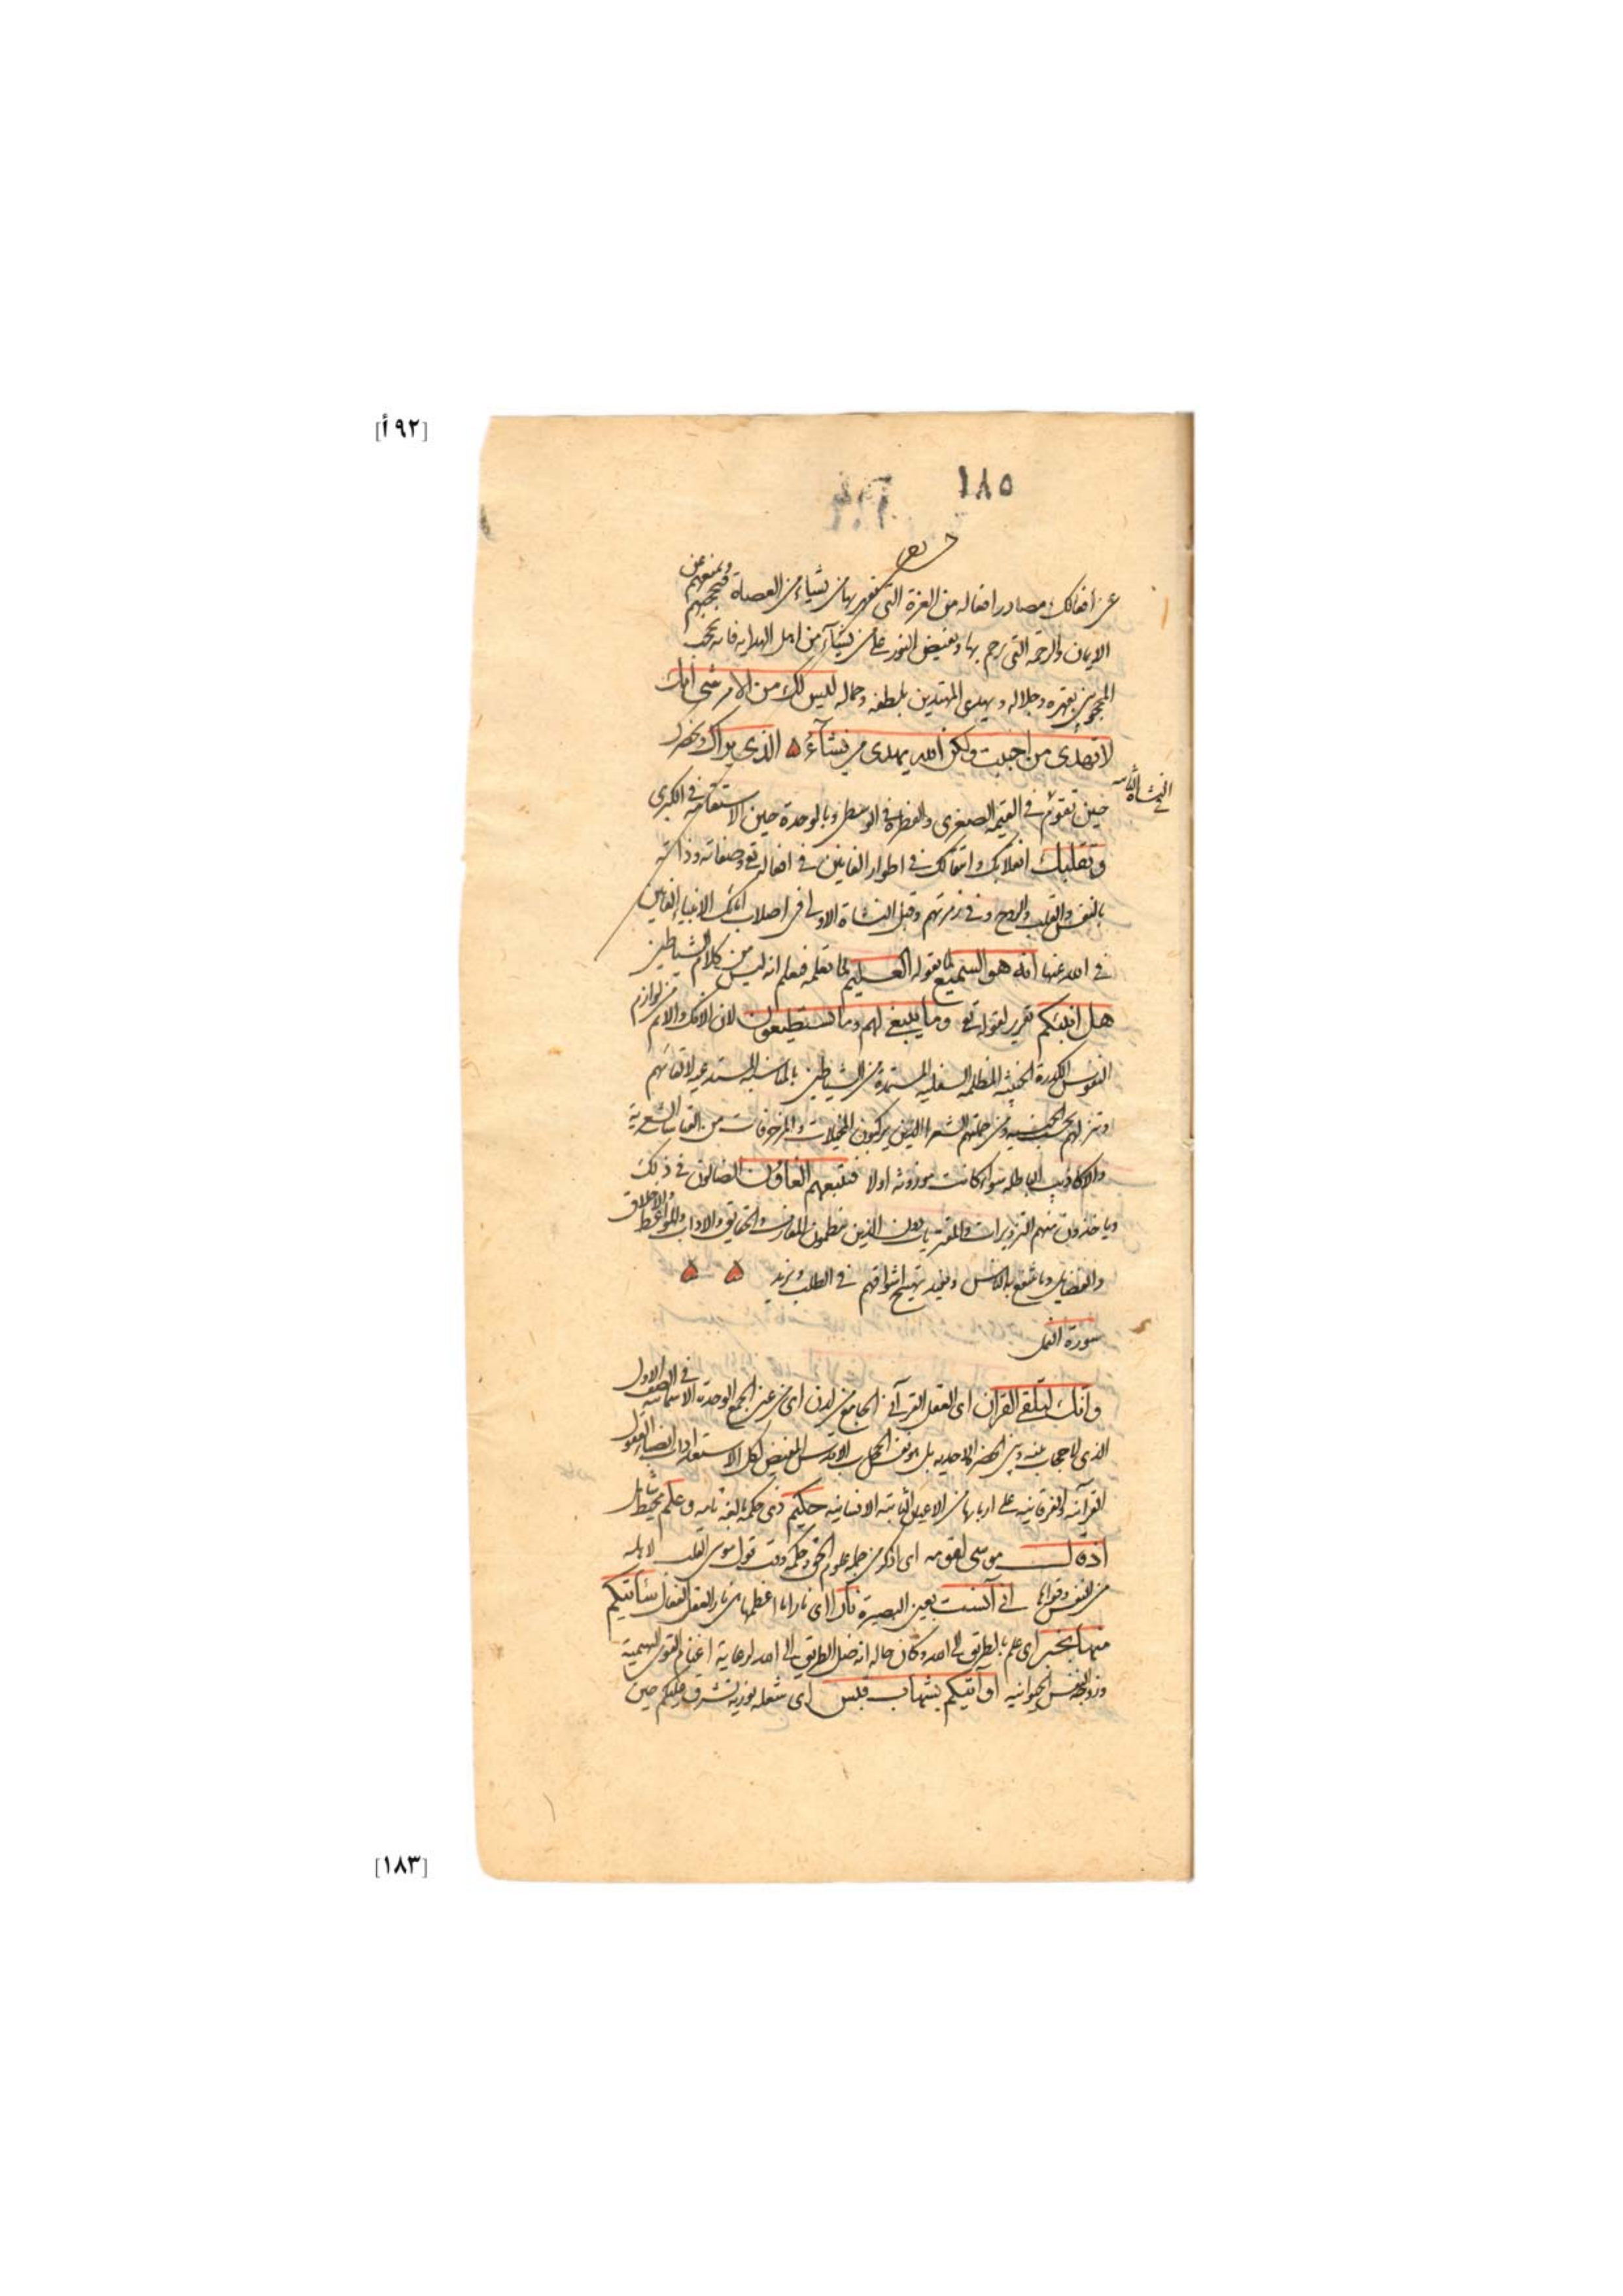 [٩٢أ]
١٨٥
عن أفعالك مصادر افعاله من العزة التى يقهر بها من يشاء من العصاة فيحجبهم ويمنعهم عن
الايمان والرحمة التى يرحم بها ويفيض النور على من يشآء من اهل الهداية فانه يحجب
المحجوبين بقهره وجلاله ويهدى المهتدين بلطفه وجماله ليس لك من الامر شئ انك
لا تهدى من احببت ولكن الله يهدى من يشآء الذى يراك ويحضرك
حين تقوم فى القيمة الصغرى والفطرة فى الوسطى وبالوحدة حين الاستقامة فى الكبرى
فى النشأة
وتقلبك انقلابك وانتقالك فى اطوار الفانين فى افعاله تع وصفاته وذاته
بالنفس والقلب والروح وفى زمرتهم وقبل النشاة الاولى فى اصلاب ابائك الانبيا الفانين
فى الله عنها انه هو السميع لما تقوله العليم لما تعلمه فيعلم انه ليس من كلام الشياطين
هل انبئكم تقرير لقوله تع وما ينبغى لهم وما يستطيعون لان الافك والاثم من لوازم
النفوس الكدرة الخبيثة المظلمة السفلية المستمدة من الشياطين بالمناسبة المستدعية لالقائهم
وتنزلهم بحسب الجنسية ومن جملتهم الشعرا الذين يركبون المخيلات والمزخرفات من القياسات الشعرية
والاكاذيب الباطلة سواء كانت موزونة اولا فيتبعهم الغاوون الضالون فى ذلك
وياخذون منهم التزويرات والمفتريات دون الذين ينظمون المعارف والحقايق والاداب والمواعظ والاخلاق
والفضايل وما ينتفع به الناس ويفيد تهييج اشواقهم فى الطلب ويزيد
سورة النمل
وانك لتلقى القران اى العقل القرآنى الجامع من لدن اى من عين الجمع الوحدة الاسمائية فى الصف الاول
الذى لا حجاب بينه وبين الحضرة الاحدية بل هو نفس الحجاب الاقدس المفيض لكل الاستعدادات العقول
القرآنية والفرقانية على اربابها من الاعيان الثابتة الانسانية حكيم ذى حكمة بالغة تامة وعليم محيط شامل
اذ قال موسى لقومه اى اذكر من جملة علوم الحق وحكمه وقت قول موسى القلب لاهله
من النفس وقواها انى آنست بعين البصيرة نارا اى نارا ما اعظمها هى نار العقل الفعال سآتيكم
منها بخبر اى علم بالطريق الى الله وكان حاله انه ضل الطريق الى الله لرعاية اغنام القوى البهيمية
وزوجه النفس الحيوانية او آتيكم بشهاب قبس اى شعلة نورية تشرق عليكم حين
[١٨٣]